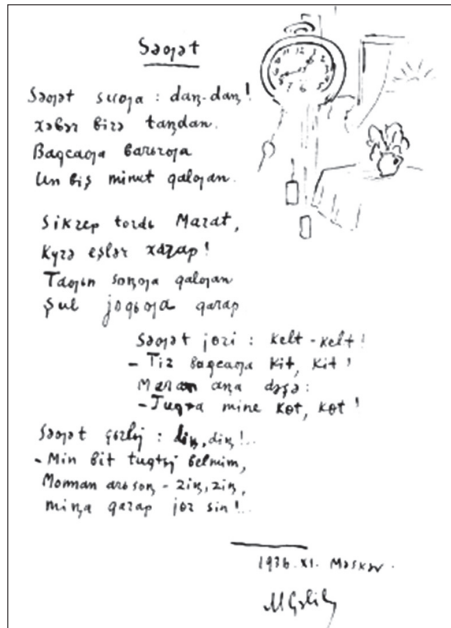 Səƣət
Səƣət suƣa : daꞑ-daꞑ!
Xəbər birə taꞑdan.
Baqcaƣa barьrƣa
Un biş minut qalƣan.
Sikrep tordь Marat,
Kyrə eşlər xarap!
Taƣьn soꞑƣa qalƣan
Şul joqьƣa qarap
Səƣət jɵri : kelt-kelt!
– Tiz baqcaƣa kit, kit!
Marat aꞑa dəşə:
– Tuqta mine kɵt, kɵt!
Səƣət : diꞑ, diꞑ!..
– Min bit tuqtьj belmim,
Monnan arь soꞑ – ziꞑ, ziꞑ,
miꞑa qarap jɵr sin!..
1936.XI. Məskəv.
MÇəlil